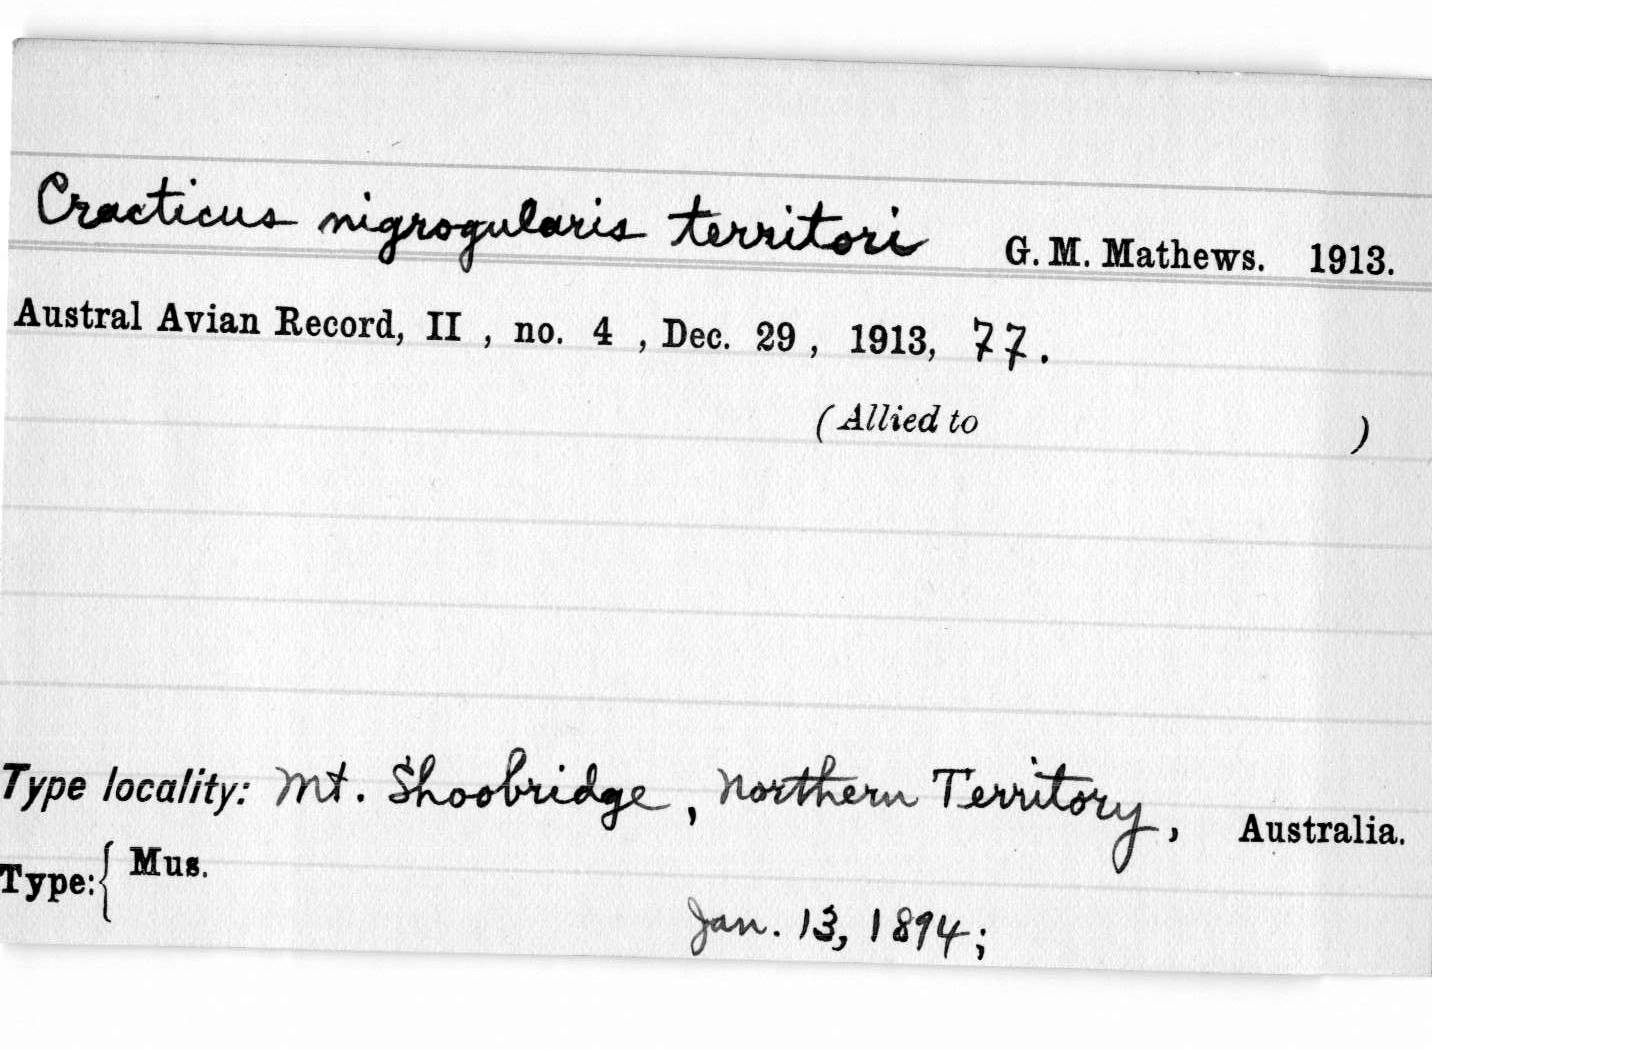 Cracticus nigrogularis territori G. M. Mathews. 1913.
Austral Avian Record, II , no. 4 , Dec. 29 , 1913, 77.
(Allied to )
Type locality: Mt. Shoobridge, Northern Territory, Australia.
Type: { Mus.
Jan. 13, 1894;